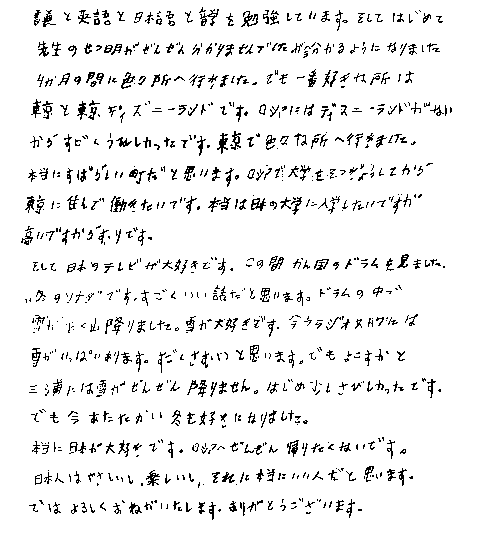 議と英語と日本語と哲学を勉強しています。そして はじめて
先生のせつ明がぜんぜん分かりませんでしたが分かるようになりました
4か月の間に色々な所へ行きました。でも一番好きな所は
東京と東京ディズニーランドです。ロシアにはディズニーランドがない
からすごくうれしかったです。東京で色々な所へ行きました。
本当にすばらしい町だと思います。ロシアで大学をそつぎょうしてから
東京に住んで働きたいです。本当は日本の大学に入学したいですが
高いですからむりです。
そして日本のテレビが大好きです。この間かん国のドラムを見ました。
"冬のソナタ"です。すごくいい話だと思います。ドラムの中で
雪がたくさん降りました。雪が大好きです。今ウラジオストクには
雪がいっぱいあります。すごくさむいと思います。でもよこすかと
三浦には雪がぜんぜん降りません。はじめ少しさびしかったです。
でも今あたたかい冬も好きになりました。
本当に日本が大好きです。ロシアへぜんぜん帰りたくないです。
日本人はやさしいし、楽しいし、それに本当にいい人だと思います。
ではよろしくおねがいたします。ありがとうございます。